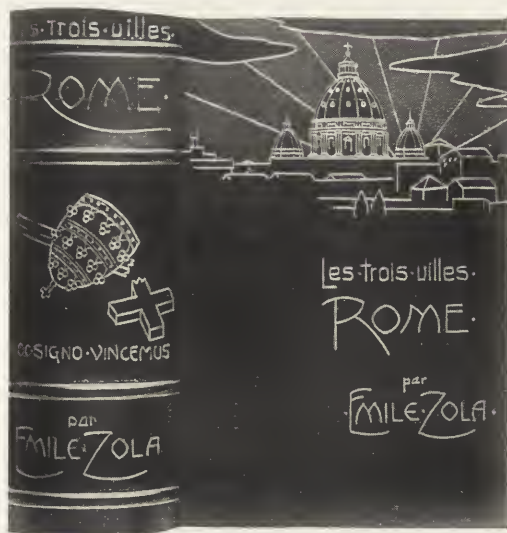 Trois·villes·
ROME·
SIGNO·VINCEMUS
par
EMILE·ZOLA
Les·trois·villes·
ROME·
par
·EMILE·ZOLA·